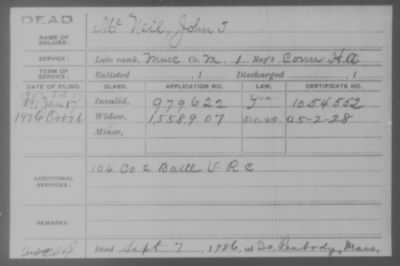 DEAD
NAME OF SOLDIER: Mc Neil, John T
SERVICE: Late rank, Musc Co. M, 1 Reg't Conn H.A
TERM OF SERVICE: Enlisted , 1 Discharged , 1
DATE OF FILING. CLASS. APPLICATION NO. LAW. CERTIFICATE NO.
Jan 17 Invalid, 979622 1054552
1926 Oct 26 Widow, 1,558,907 A5-2-28
Minor,
ADDITIONAL SERVICES: 104 Co 2 Batt V R C
REMARKS:
Died Sept 7, 1926, at So. Peabody, Mass.